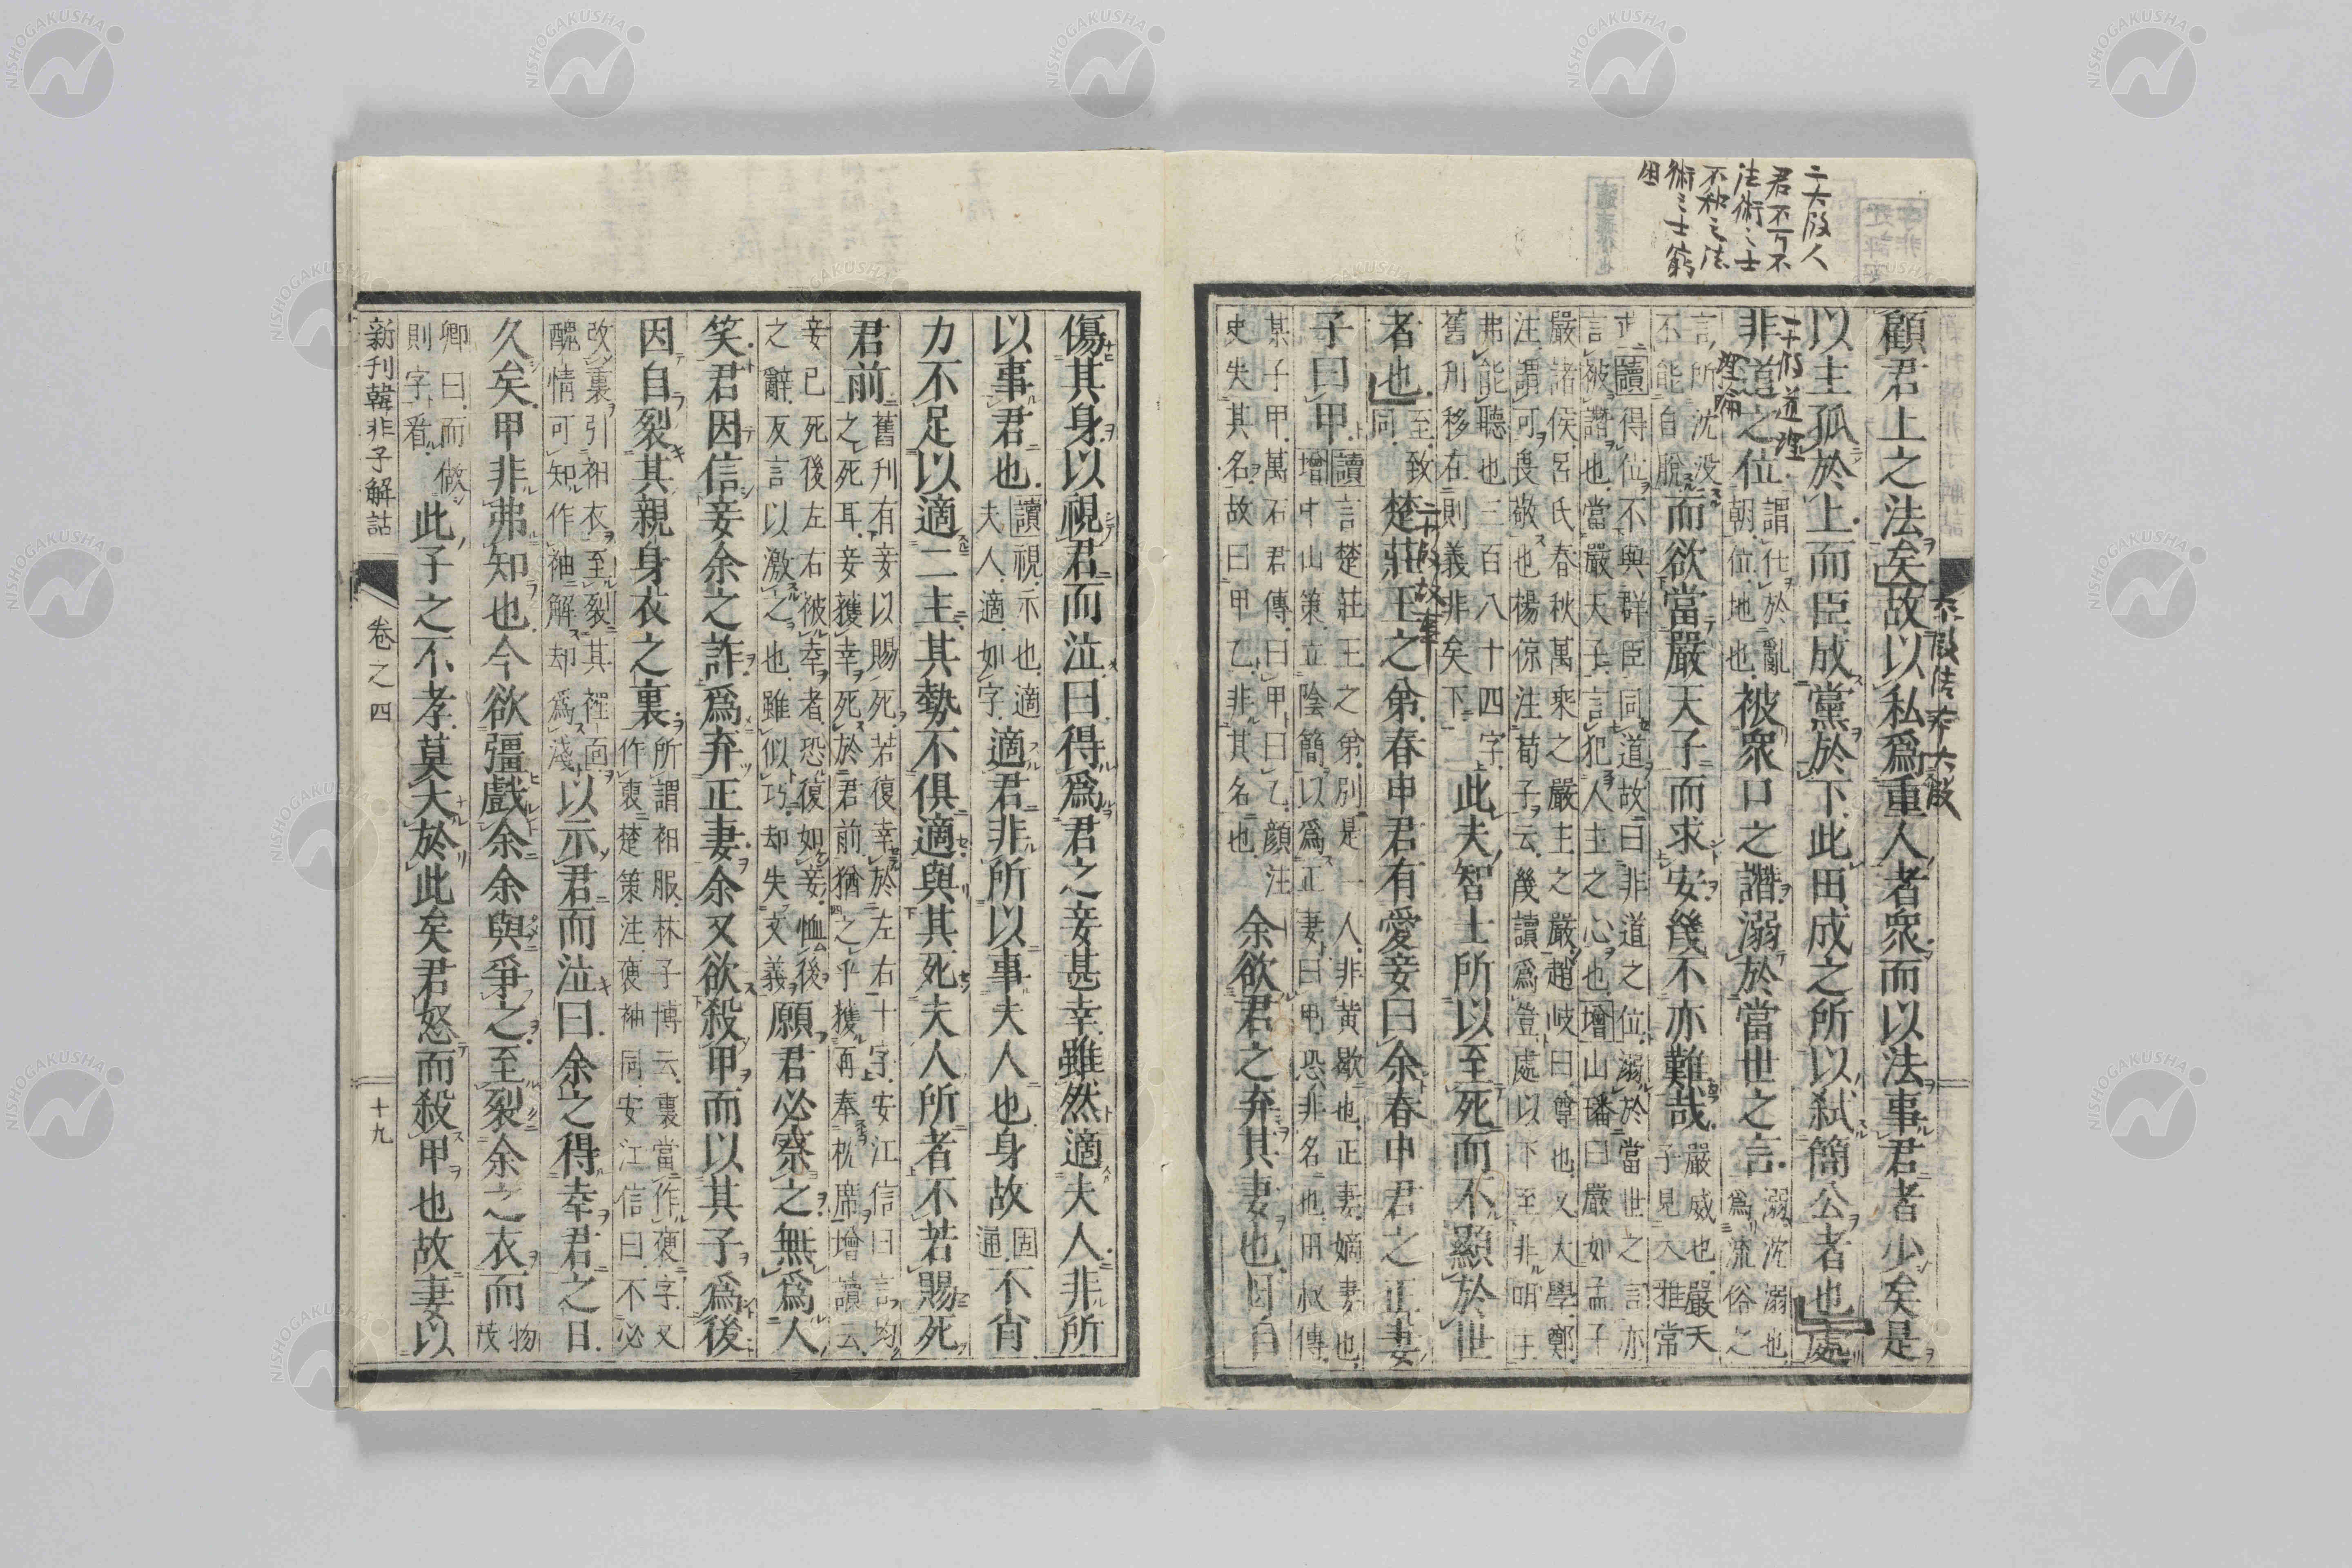 二大段人
君不可不
法術之士
不和之法
術之士窮
困
顧君上之法矣故以私爲重人者衆而以法事君者少矣是
以主孤於上而臣成黨於下此田成之所以弑簡公者也處
非道之位
謂仕於亂
朝位地也
被衆口之譖溺於當世之言
溺沈溺也
爲流俗之
言所沈没
不能自脫
而欲當嚴天子而求安幾不亦難哉
嚴威也嚴天
子見大雅常
武讀得位不與群臣同道故曰非道之位溺於當世之言亦
言被譖也當嚴天子言犯人主之心也增山璠曰嚴如孟子
嚴諸侯呂氏春秋萬乘之嚴主之嚴趙岐曰尊也又大學鄭
注謂可畏敬也楊倞注荀子云幾讀爲豈處以下至非明主
弗能聽也三百八十四字
舊刋移在則義非矣下
此夫智士所以至死而不顯於世
者也
至致
同
楚莊王之弟春申君有愛妾曰余春申君之正妻
子曰甲
讀言楚莊王之弟別是一人非黄歇也正妻嫡妻也
增中山策立陰簡以爲正妻曰甲恐非名也田叔傳
某子甲萬石君傳曰甲曰乙顔注
史失其名故曰甲乙非其名也
余欲君之弃其妻也因自
傷其身以視君而泣曰得爲君之妾甚幸雖然適夫人非所
以事君也
讀視示也適
夫人適如字
適君非所以事夫人也身故
固
通
不肖
力不足以適二主其勢不俱適與其死夫人所者不若賜死
君前
舊刋有妾以賜死若復幸於左右十字安江信曰言均
之死耳妾獲幸死於君前猶之乎獲再奉枕席增讀云
妾已死後左右被幸者恐復如妾恤後
之辭反言以激之也雖似巧却失文義
願君必察之無爲人
笑君因信妾余之詐爲弃正妻余又欲殺甲而以其子爲後
因自裂其親身衣之裏
所謂衵服林子博云裏當作褏字又
作裛楚策注褏袖同安江信曰不必
改裏引衵衣至裂其裡面
醜情可知作袖解却爲淺
以示君而泣曰余之得幸君之日
久矣甲非弗知也今欲彊戲余余與爭之至裂余之衣而
物
茂
卿曰而倣
則字看
此子之不孝莫大於此矣君怒而殺甲也故妻以
新刋韓非子解詁
卷之四
十九
NISHOGAKUSHA